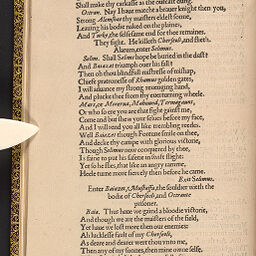 Shall make thy carkasse as the outcast dung.
Ottran. Nay Ibaut matcht a brauer knight then you,
Strong Alemshæ thy maisters eldest sonne,
Leauing his bodie naked on the plaines,
And Turke, the selfesame end for thee remaines.
They fight. He killeth Cherseoli, and flieth.
Alarum, enter Selimus.
Selim. Shall Selim hope be buried in the dust?
And Baiazet triumph ouer his fall?
Then oh thou blindfull mistresse of mishap,
Chiefe patronesse of Rhamus golden gates,
I will aduance my strong reuenging hand,
And plucke thee from thy euerturning wheele.
Mars, or Minerua, Mahound, Termagaunt,
Or who so ere you are that fight gainst me,
Come and but shew your selues before my face,
And I will rend you all like trembling reedes.
Well Baiazet though Fortune smile on thee,
And decke thy campe with glorious victorie,
Though Selimus now conquered by thee,
Is faine to put his safetie in swift flight.
Yet so he flies, that like an angry ramme,
Heele turne more fiercely then before he came.
Exit Selimus.
Enter Baiazet, Mustaffa, the souldiers with the
bodie of Cherseoli, and Ottrante
prisoner.
Baia. Thus haue we gaind a bloodie victorie,
And though we are the maisters of the field,
Yet haue we lost more then our enemies:
Ah lucklesse fault of my Cherseoli,
As deare and dearer wert thou vnto me,
Then any of my sonnes, then mine owne selfe.